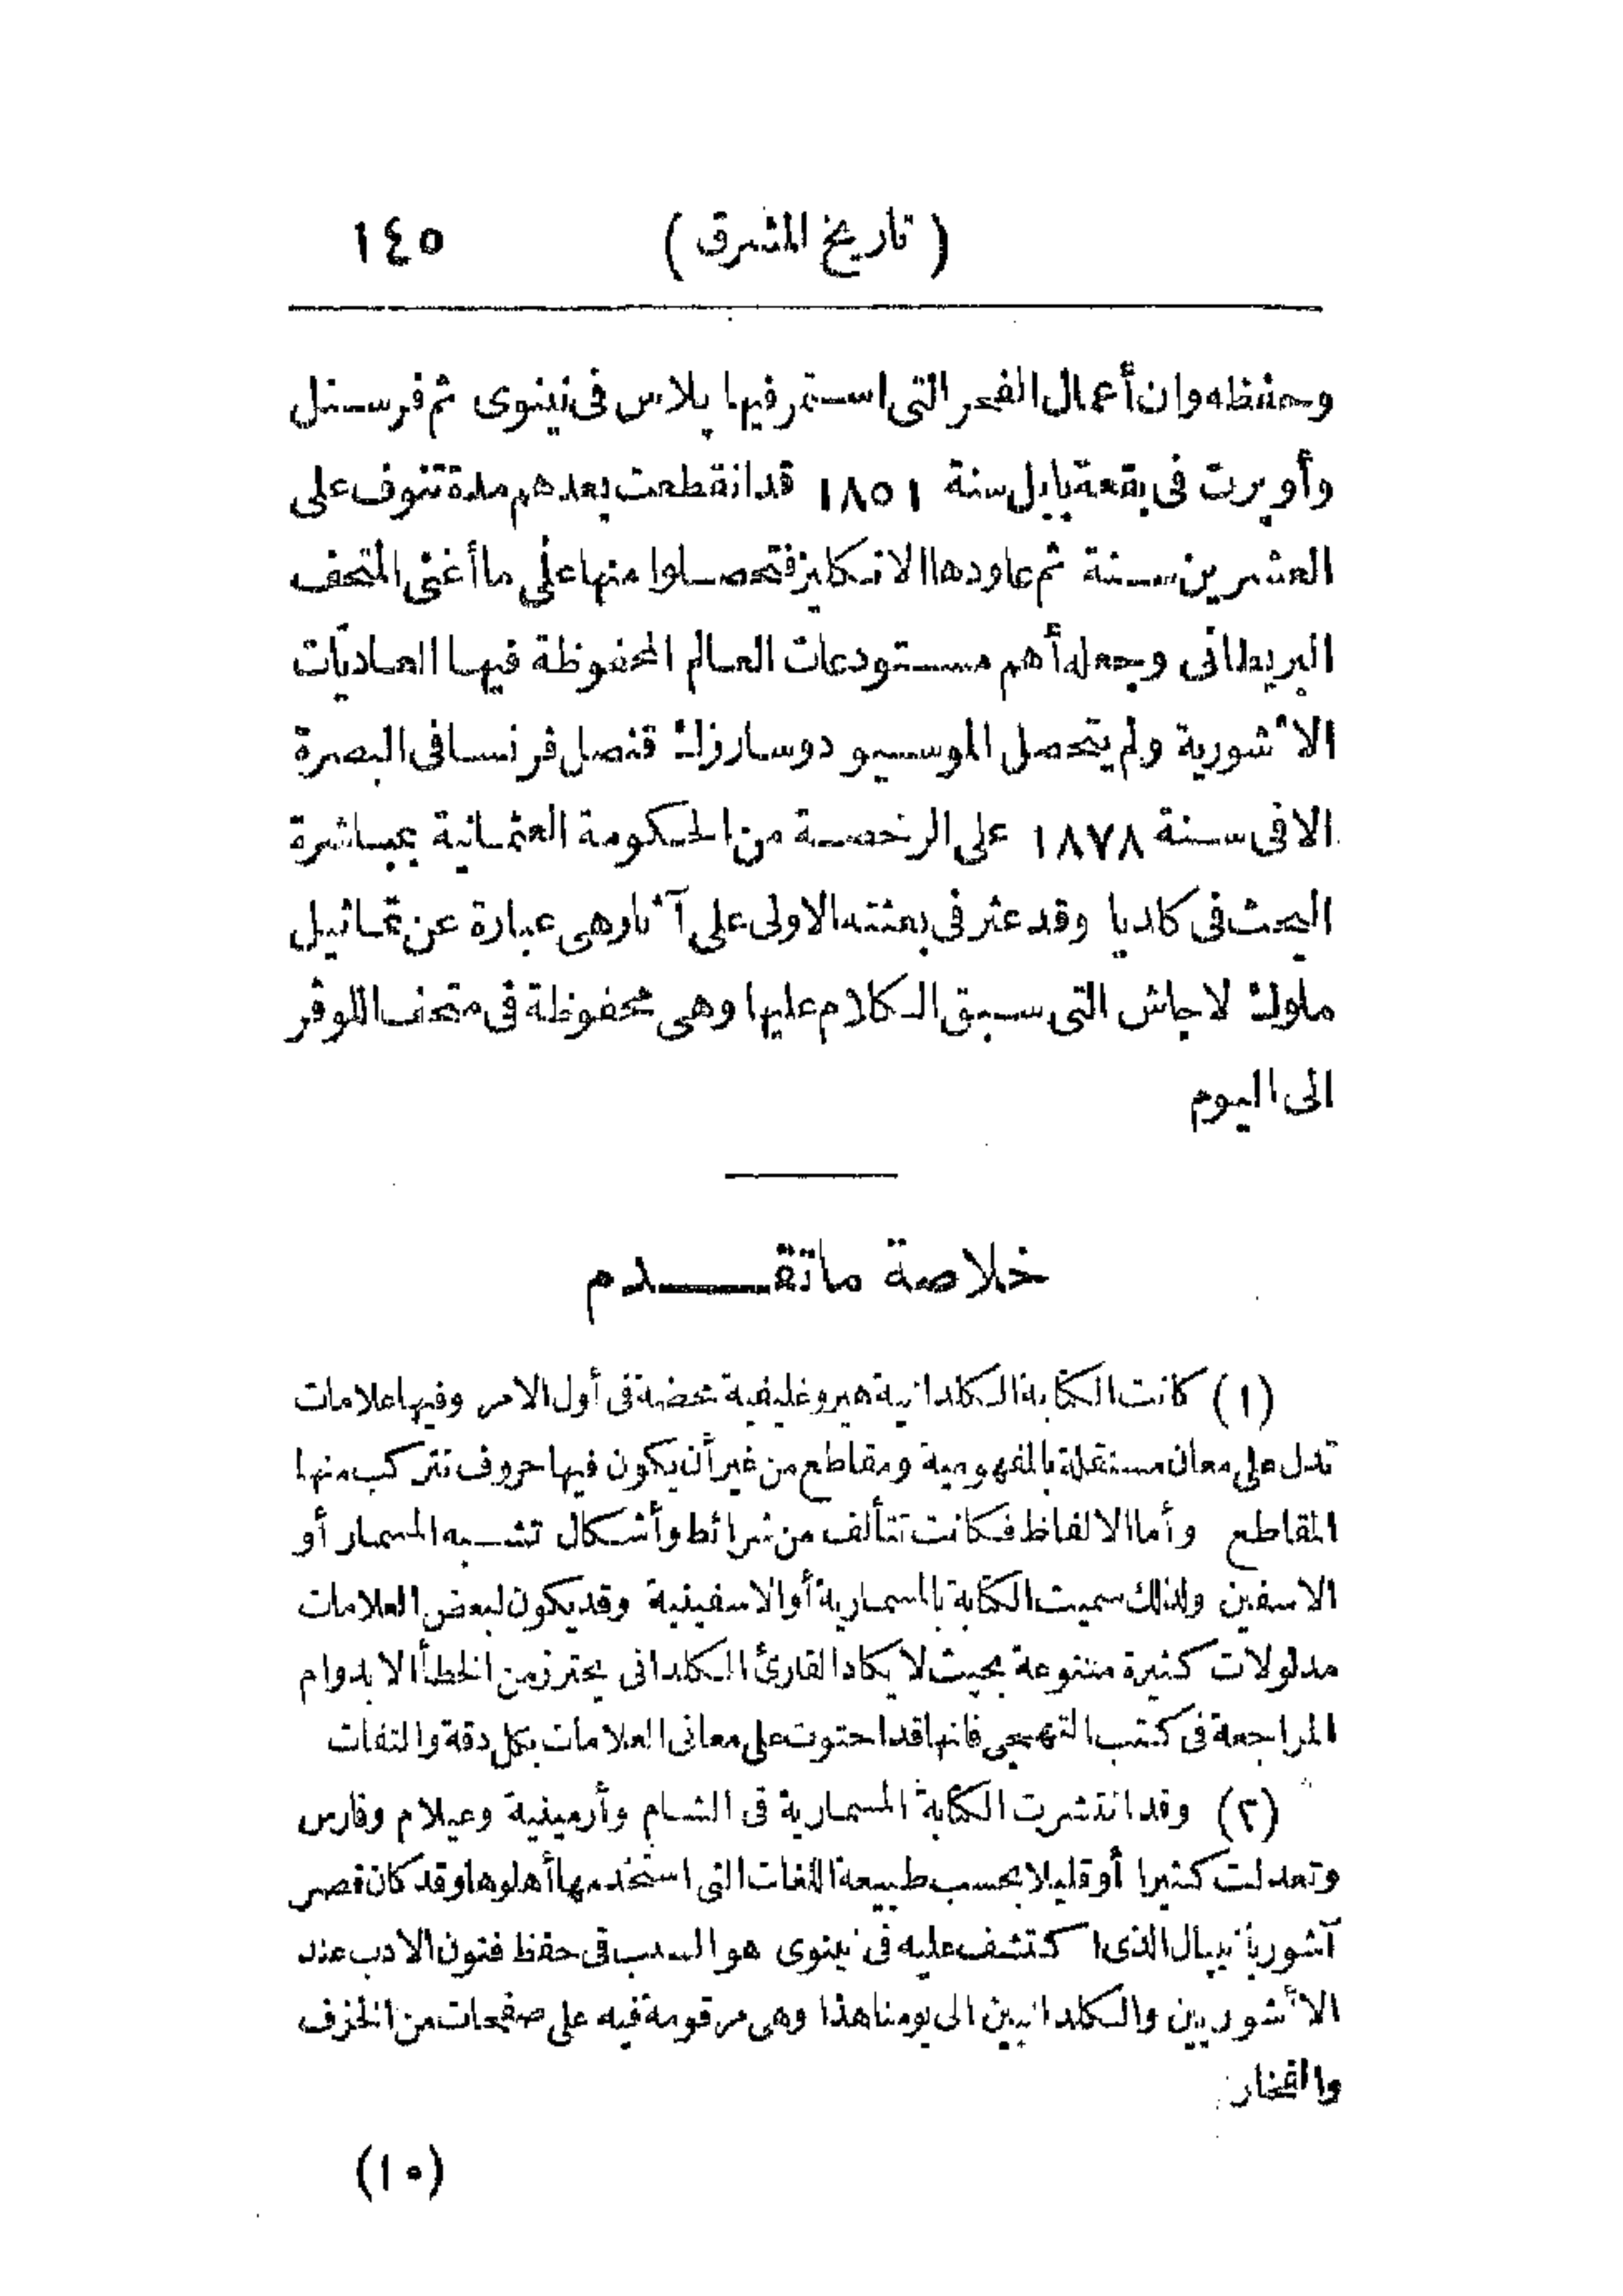 ١٤٥ ( تاريخ المشرق )
وحفظه وان أعمال الفحر التى استمر فيها پلاس فى نينوى ثم فرسنل
وأوپرت فى بقعة بابل سنة ١٨٥١ قد انقطعت بعدهم مدة تنوف على
العشرين سنة ثم عاودها الانكليز فتحصلوا منها على ما أغنى المتحف
البريطانى وجعله أهم مستودعات العالم المحفوظة فيها العاديات
الأشورية ولم يتحصل الموسيو دوسارزك قنصل فرنسا فى البصرة
الا فى سنة ١٨٧٨ على الرخصة من الحكومة العثمانية بمباشرة
البحث فى كلديا وقد عثر فى بعثته الاولى على آثار هى عبارة عن تماثيل
ملوك لاجاش التى سبق الكلام عليها وهى محفوظة فى متحف اللوڤر
الى اليوم
خلاصة ماتقدم
(١) كانت الكتابة الكلدانية هيروغليفية محضة فى أول الامر وفيها علامات
تدل على معان مستقلة بالمفهومية ومقاطع من غير أن يكون فيها حروف تتركب منها
المقاطع وأما الالفاظ فكانت تتألف من شرائط وأشكال تشبه المسمار أو
الاسفين ولذلك سميت الكتابة بالمسمارية أو الاسفينية وقد يكون لبعض العلامات
مدلولات كثيرة متنوعة بحيث لا يكاد القارئ الكلدانى يحترز من الخطأ الا بدوام
المراجعة فى كتب التهجى فانها قد احتوت على معانى العلامات بكل دقة والتفات
(٢) وقد انتشرت الكتابة المسمارية فى الشام وأرمينية وعيلام وفارس
وتعدلت كثيرا أو قليلا بحسب طبيعة اللغات التى استخدمها أهلوها وقد كان قصر
آشوربانيبال الذى اكتشف عليه فى نينوى هو السبب فى حفظ فنون الادب عند
الأشوريين والكلدانيين الى يومنا هذا وهى مرقومة فيه على صفحات من الخزف
والفخار
(١٠)